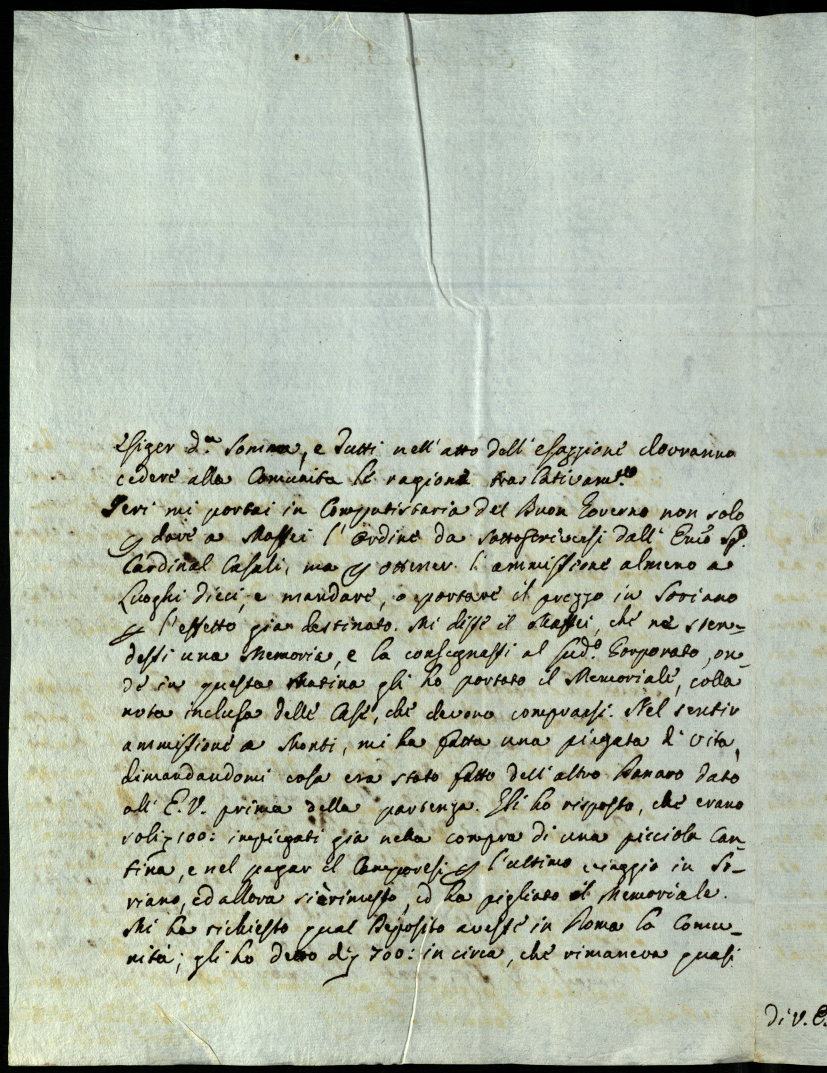 esiger d.ª somma, e tutti nell'atto dell'esazzione dovranno
cedere alla Comunita le ragioni traslativam.te
Jeri mi portai in Computistaria del Buon Governo non solo
p dare a Maffei l'ordine da sottoscriversi dall'Emo Sig.
Cardinal Casali, ma p ottener l'ammissione almeno a
Luoghi dieci, e mandare, o portare il prezzo in Soriano
p l'effetto gia destinato. Mi disse il Maffei, che ne sten-
dessi una Memoria, e la consegnassi al sud.o Corporato, on-
de in questa matina gli ho portato il Memoriale, colla
nota inclusa delle Case, che devono comprarsi. Nel sentir
ammissione a Monti, mi ha fatta una piegata di vita,
dimandandomi cosa era stato fatto dell'altro danaro dato
all'E.V. prima della partenza. Gli ho risposto, che erano
soli 100: impiegati gia nella compra di una picciola Can-
tina, e nel pagar il Camporesi p l'ultimo viaggio in So-
riano, ed allora si è rimesso, ed ha pigliato il Memoriale.
Mi ha richiesto qual Deposito avesse in Roma la Comu-
nità; gli ho detto di 700: in circa, che rimaneva quasi
di V. E.